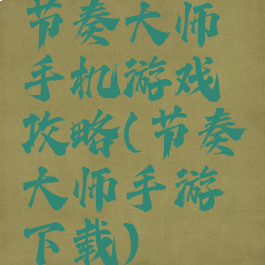 节奏大师
手机游戏
攻略(节奏
大师手游
下载)